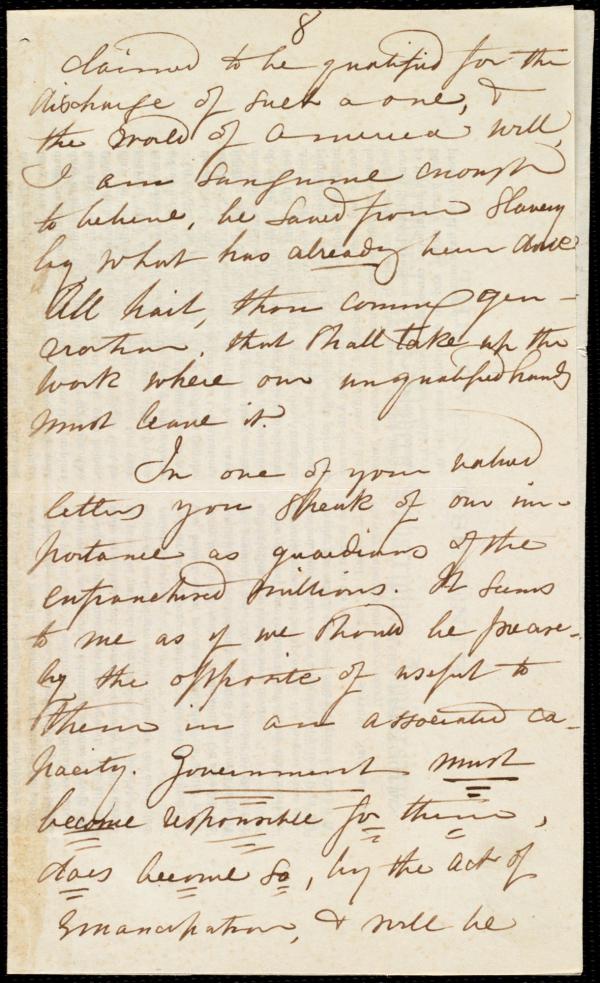 8
claimed to be qualified for the
discharge of such a one, &
the world of America will,
I am sanguine enough
to believe, be saved from Slavery
by what has already been done.
All hail, thou coming gen-
eration, that shall take up the
work where our unqualified hands
must leave it.
In one of your valued
letters you speak of our im-
portance as guardians of the
enfranchised millions. It seems
to me as if we should be precise-
ly the opposite of useful to
them in an associated ca-
pacity. Government must
become responsible for them,
does become so, by the act of
Emancipation, & will be